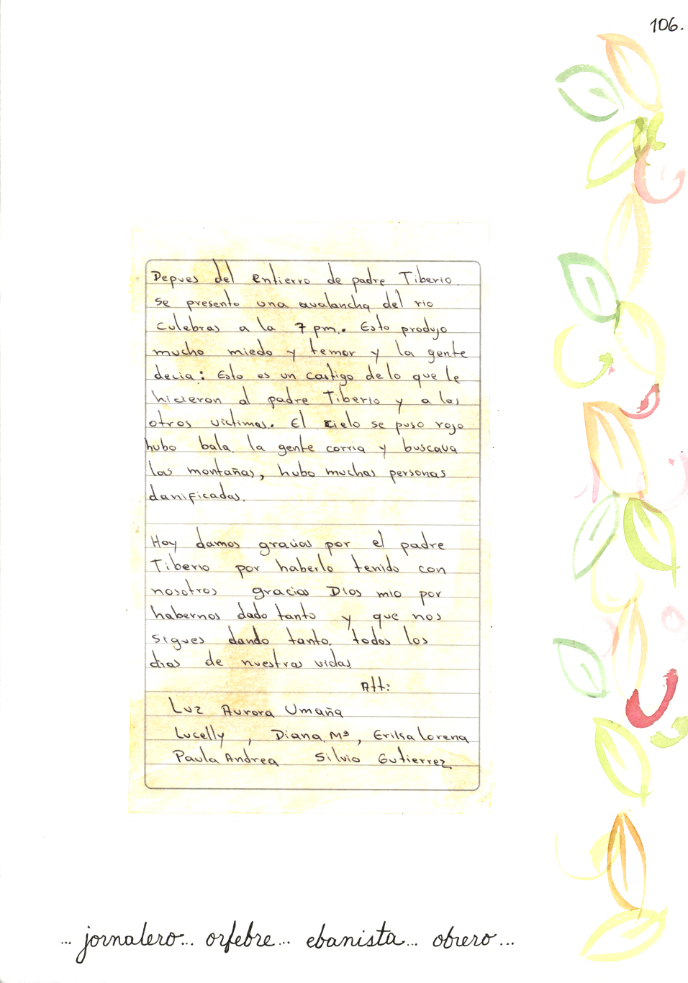 106.
Depues del entierro de padre Tiberio.
se presento una avalancha del rio
Culebras a la 7 pm,. Esto produjo
mucho miedo y temor y la gente
decia: Esto es un castigo de lo que le
hicieron al padre Tiberio y a las
otros victimas. El cielo se puso rojo
hubo bala. la gente corria y buscava
las montañas, hubo muchas personas
danificadas.
Hoy damos gracias por el padre
Tiberio por haberlo tenido con
nosotros gracias Dios mio por
habernos dado tanto y que nos
sigues dando tanto. todos los
dias de nuestras vidas
Att:
Luz Aurora Umaña
Lucelly , Diana Mª, Erika Lorena
Paula Andrea Silvio Gutierrez
... jornalero... orfebre... ebanista... obrero...